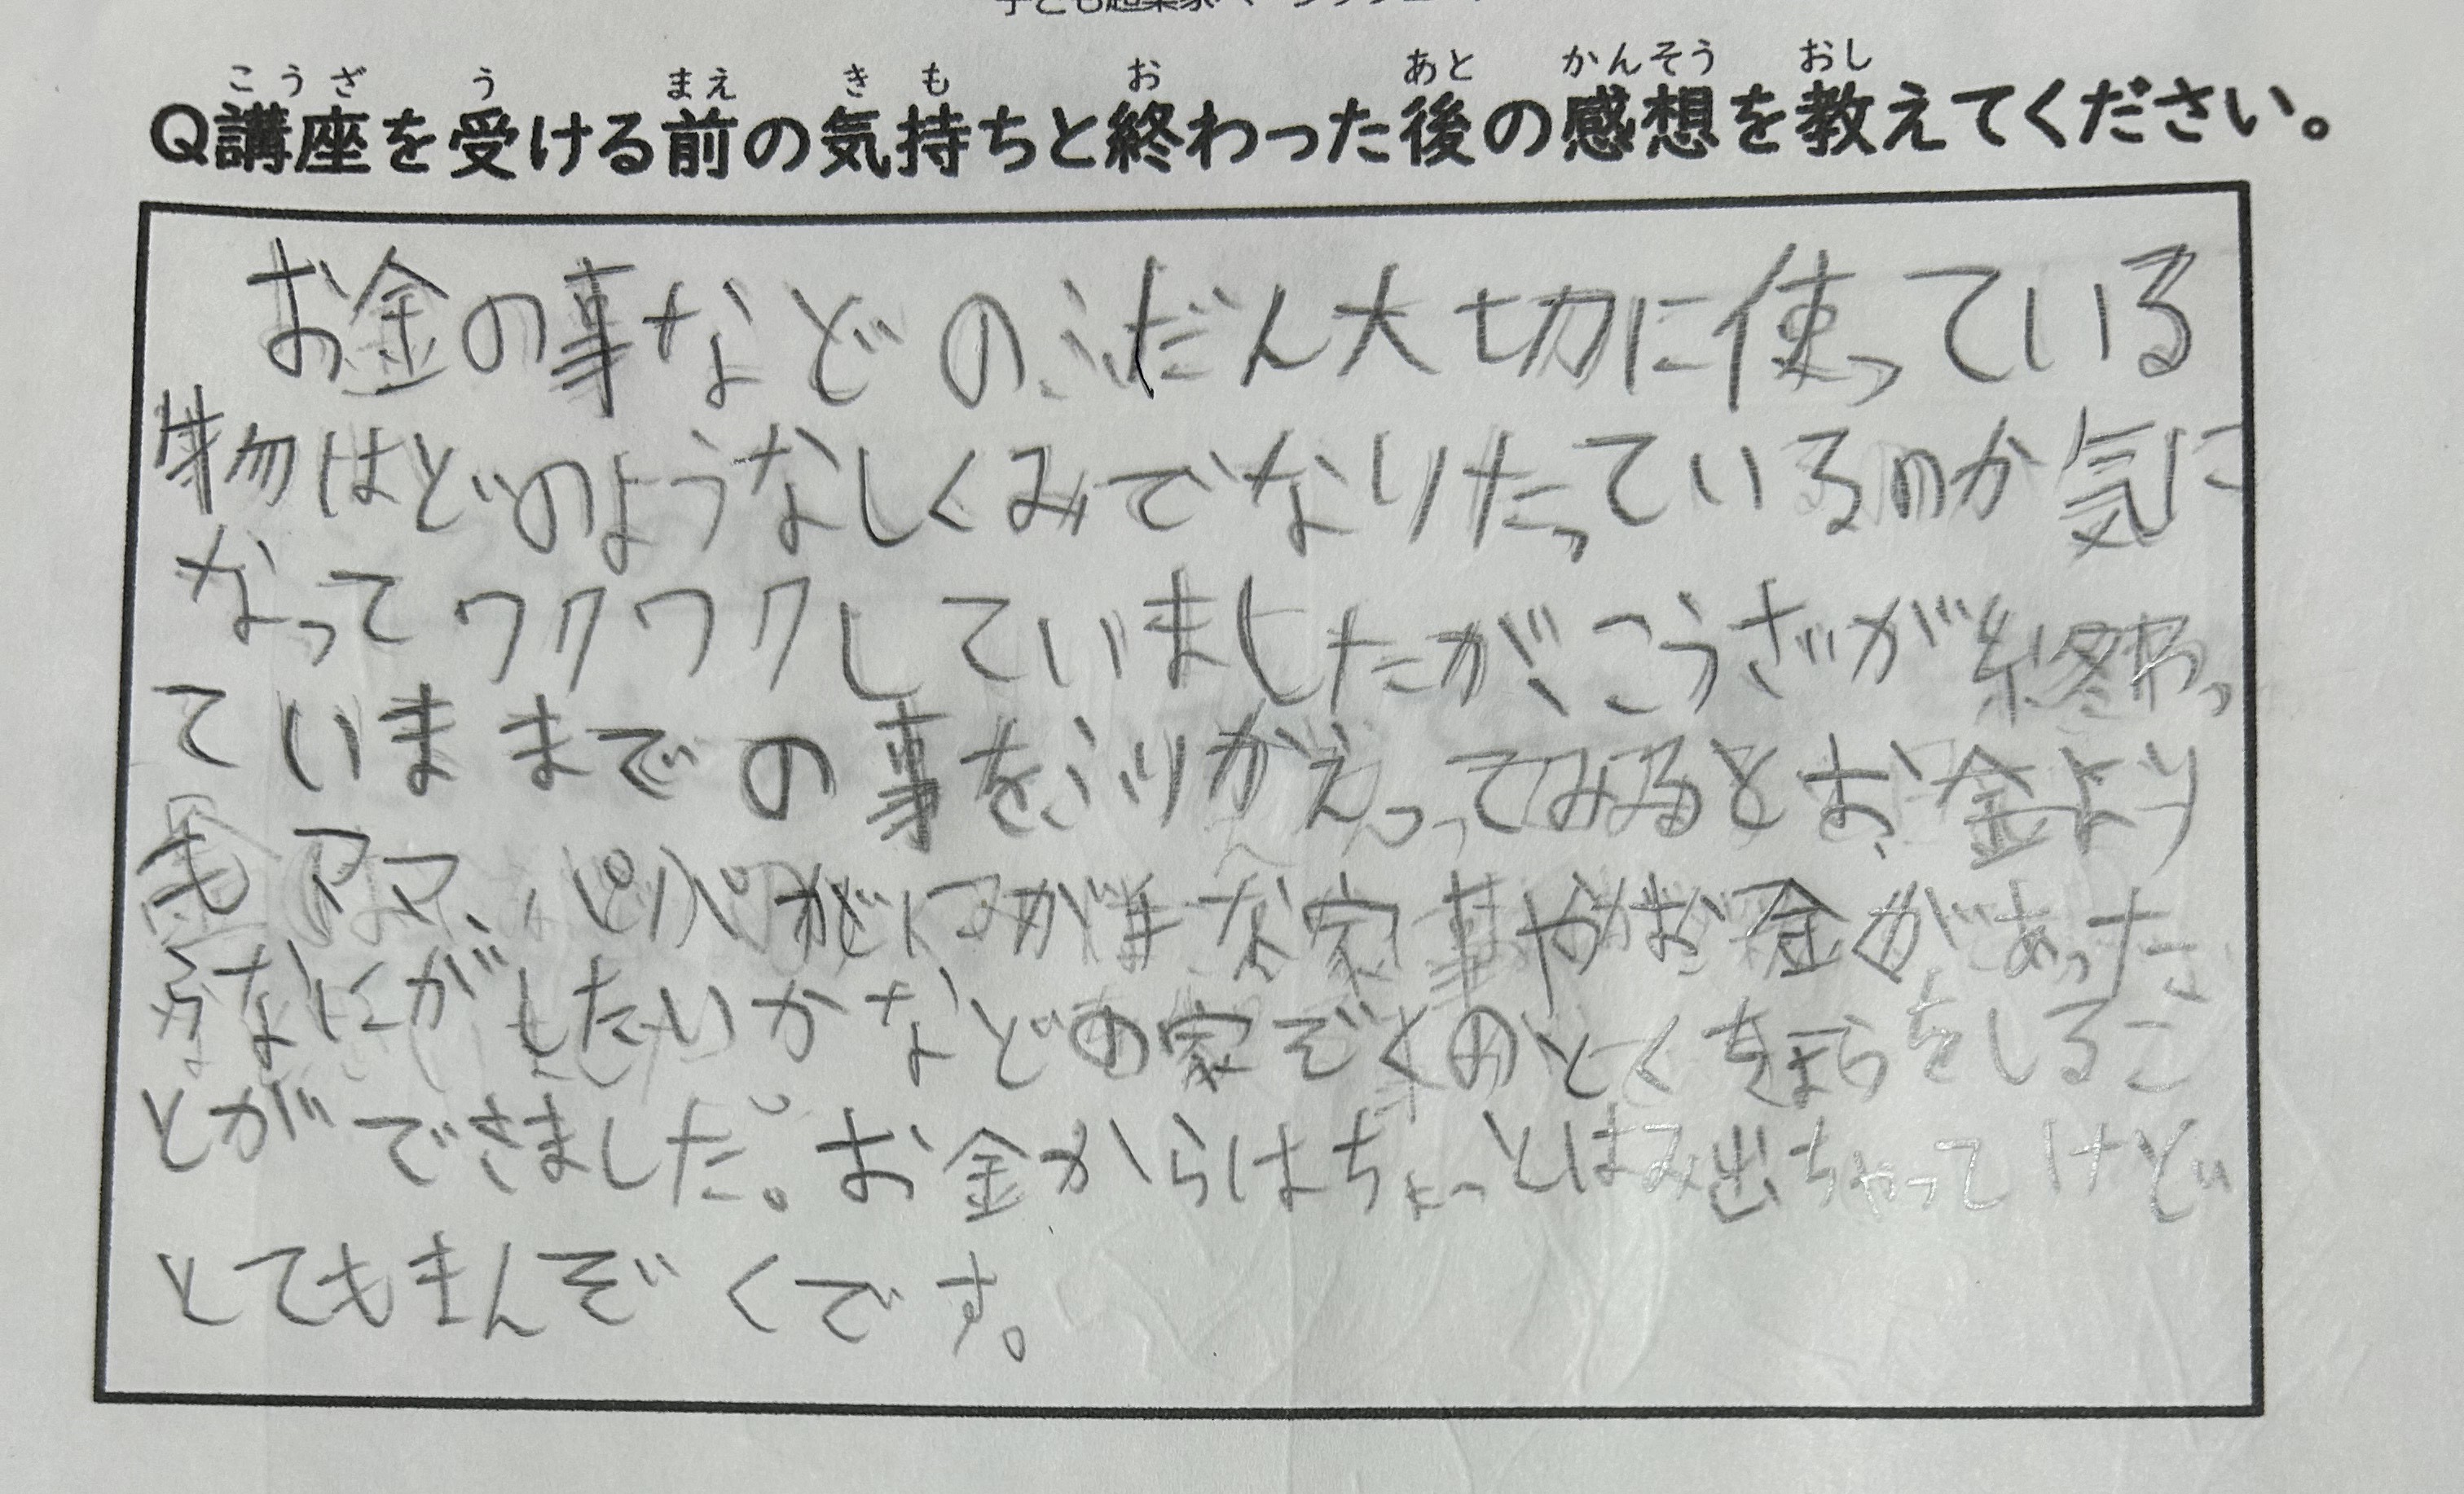 こうざ う まえ き も お あと かんそう おし
Q講座を受ける前の気持ちと終わった後の感想を教えてください。
お金の事などのふだん大切に使っている
物はどのようなしくみでなりたっているのか気に
なってワクワクしていましたが、こうざが終わっ
ていままでの事をふりかえってみるとお金より
もママ、パパがにがてな家事やお金があった
らなにがしたいかなどの家ぞくのとくを
しるこ
とができました。お金からはちょっとはみ出ちゃってけど
とてもまんぞくです。